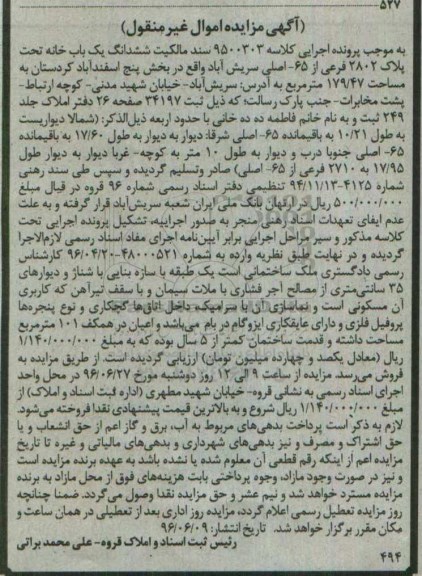 ۵۲۷
(آگهی مزایده اموال غیر منقول)
به موجب پرونده اجرایی کلاسه ۹۵۰۰۳۰۳ سند مالکیت ششدانگ یک باب خانه تحت
پلاک ۲۸۰۲ فرعی از ۶۵- اصلی سریش آباد واقع در بخش پنج اسفندآباد کردستان به
مساحت ۱۷۹/۴۷ مترمربع به آدرس: سریش‌آباد- خیابان شهید مدنی- کوچه ارتباط-
پشت مخابرات- جنب پارک رسالت؛ که ذیل ثبت ۳۴۱۹۷ صفحه ۲۶ دفتر املاک جلد
۲۴۹ ثبت و به نام خانم فاطمه ده ده خانی با حدود اربعه ذیل‌الذکر: (شمالا دیواریست
به طول ۱۰/۲۱ به باقیمانده ۶۵- اصلی شرقا: دیوار به دیوار به طول ۱۷/۶۰ به باقیمانده
۶۵- اصلی جنوبا درب و دیوار به طول ۱۰ متر به کوچه- غربا دیوار به دیوار طول
۱۷/۹۵ به ۲۷۱۰ فرعی از ۶۵- اصلی) صادر وتسلیم گردیده و سپس طی سند رهنی
شماره ۴۱۲۵-۹۴/۱۱/۱۳ تنظیمی دفتر اسناد رسمی شماره ۹۶ قروه در قبال مبلغ
۵۰۰/۰۰۰/۰۰۰ ریال در رهان بانک ملی ایران شعبه سریش‌آباد قرار گرفته و به علت
عدم ایفای تعهدات اسناد رهنی منجر به صدور اجراییه، تشکیل پرونده اجرایی تحت
کلاسه مذکور و سیر مراحل اجرایی برابر آیین‌نامه اجرای مفاد اسناد رسمی لازم‌الاجرا
گردیده و در نهایت طبق نظریه وارده به شماره ۴۸۰۰۰۵۲۱-۹۶/۰۴/۲۰ کارشناس
رسمی دادگستری ملک ساختمانی است یک طبقه با سازه بنایی با شناژ و دیوارهای
۳۵ سانتی‌متری از مصالح آجر فشاری با ملات سیمان و با سقف تیرآهن که کاربری
آن مسکونی است و نماسازی آن با سرامیک، داخل اتاق‌ها گچکاری و نوع پنجره‌ها
پروفیل فلزی و دارای عایقکاری ایزوگام در بام می‌باشد و اعیان در همکف ۱۰۱ مترمربع
مساحت داشته و قدمت ساختمان کمتر از ۵ سال بوده که به مبلغ ۱/۱۴۰/۰۰۰/۰۰۰
ریال (معادل یکصد و چهارده میلیون تومان) ارزیابی گردیده است. از طریق مزایده به
فروش می‌رسد. مزایده از ساعت ۹ الی ۱۲ روز دوشنبه مورخ ۹۶/۰۶/۲۷ در محل واحد
اجرای اسناد رسمی به نشانی قروه- خیابان شهید مطهری (اداره ثبت اسناد و املاک) از
مبلغ ۱/۱۴۰/۰۰۰/۰۰۰ ریال شروع و به بالاترین قیمت پیشنهادی نقدا فروخته می‌شود.
لازم به ذکر است پرداخت بدهی‌های مربوط به آب، برق و گاز اعم از حق انشعاب و یا
حق اشتراک و مصرف و نیز بدهی‌های شهرداری و بدهی‌های مالیاتی و غیره تا تاریخ
مزایده اعم از اینکه رقم قطعی آن معلوم شده یا نشده باشد به عهده برنده مزایده است
و نیز در صورت وجود مازاد، وجوه پرداختی بابت هزینه‌های فوق از محل مازاد به برنده
مزایده مسترد خواهد شد و نیم عشر و حق مزایده نقدا وصول می‌گردد. ضمنا چنانچه
روز مزایده تعطیل رسمی اعلام گردد، مزایده روز اداری بعد از تعطیلی در همان ساعت و
مکان مقرر برگزار خواهد شد. تاریخ انتشار: ۹۶/۰۶/۰۹
رئیس ثبت اسناد و املاک قروه- علی محمد براتی
۴۹۴